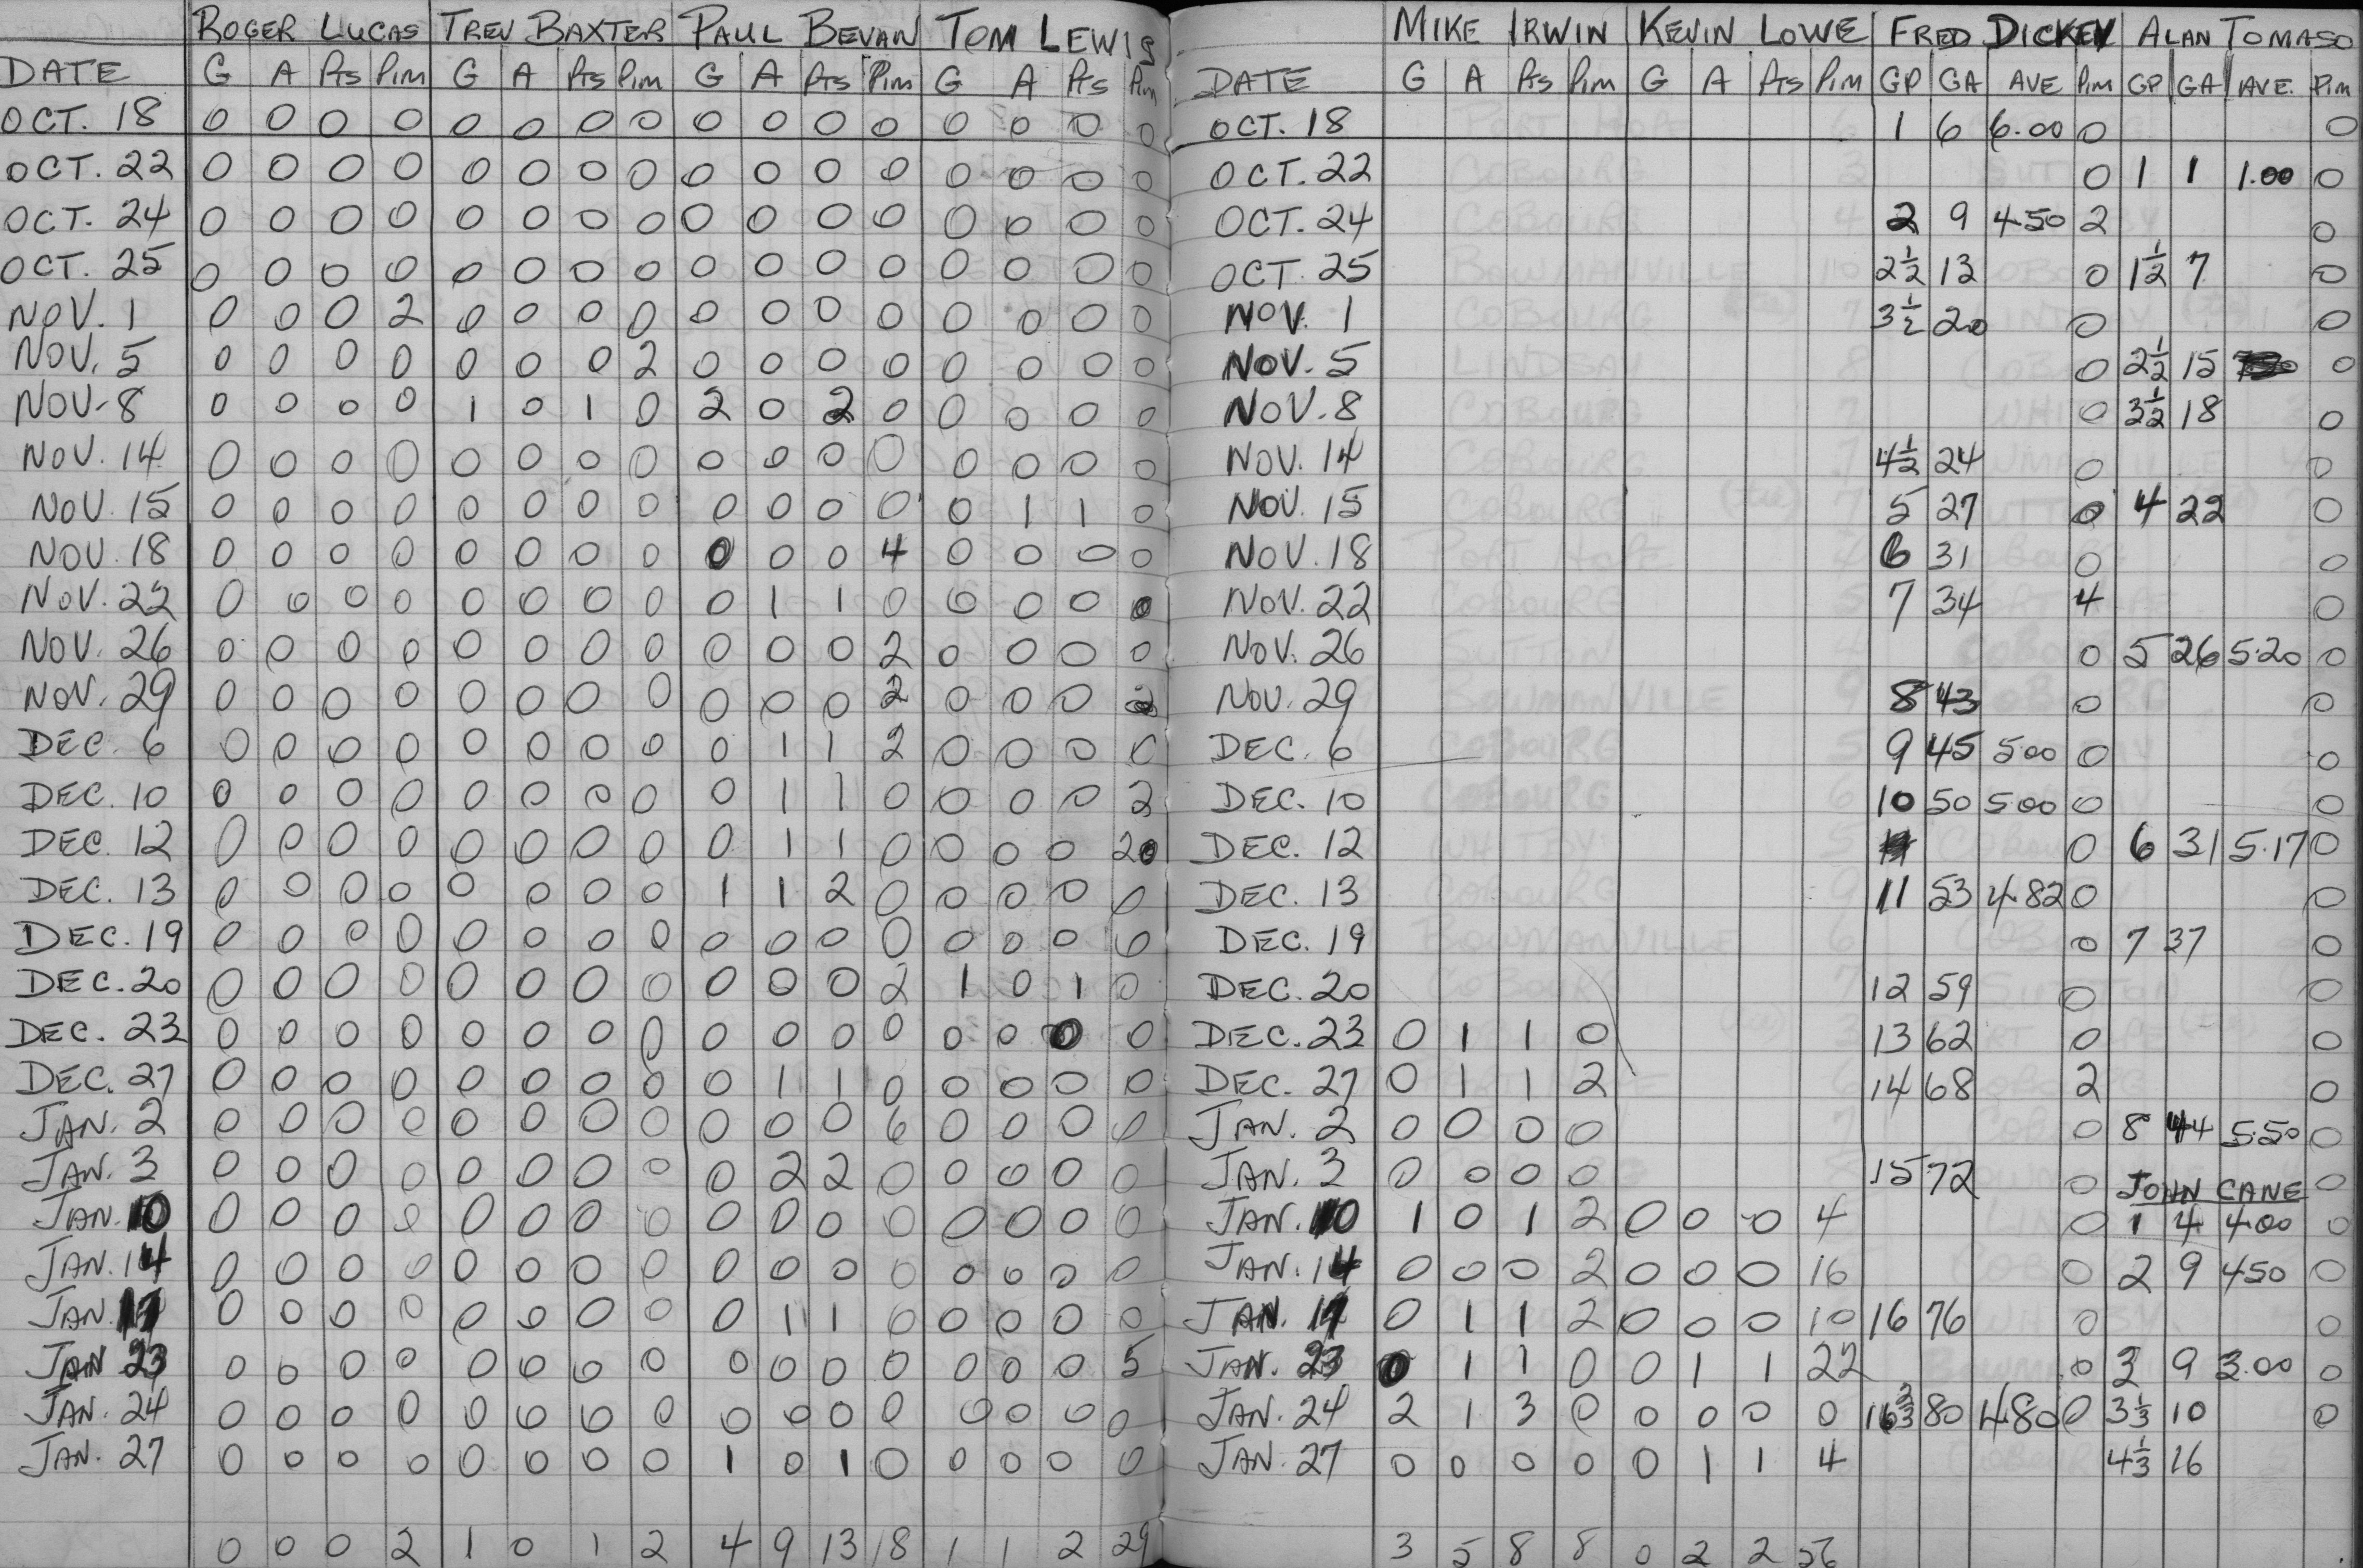 ROGER LUCAS TREV BAXTER PAUL BEVAN TOM LEWIS
DATE G A Pts Pim G A Pts Pim G A Pts Pim G A Pts Pim
OCT. 18 0 0 0 0 0 0 0 0 0 0 0 0 0 0 0 0
OCT. 22 0 0 0 0 0 0 0 0 0 0 0 0 0 0 0 0
OCT. 24 0 0 0 0 0 0 0 0 0 0 0 0 0 0 0 0
OCT. 25 0 0 0 0 0 0 0 0 0 0 0 0 0 0 0 0
NOV. 1 0 0 0 2 0 0 0 0 0 0 0 0 0 0 0 0
NOV. 5 0 0 0 0 0 0 0 2 0 0 0 0 0 0 0 0
NOV. 8 0 0 0 0 1 0 1 0 2 0 2 0 0 0 0 0
NOV. 14 0 0 0 0 0 0 0 0 0 0 0 0 0 0 0 0
NOV. 15 0 0 0 0 0 0 0 0 0 0 0 0 0 1 1 0
NOV. 18 0 0 0 0 0 0 0 0 0 0 0 4 0 0 0 0
NOV. 22 0 0 0 0 0 0 0 0 0 1 1 0 0 0 0 0
NOV. 26 0 0 0 0 0 0 0 0 0 0 0 2 0 0 0 0
NOV. 29 0 0 0 0 0 0 0 0 0 0 0 2 0 0 0 2
DEC. 6 0 0 0 0 0 0 0 0 0 1 1 2 0 0 0 0
DEC. 10 0 0 0 0 0 0 0 0 0 1 1 0 0 0 0 2
DEC. 12 0 0 0 0 0 0 0 0 0 1 1 0 0 0 0 20
DEC. 13 0 0 0 0 0 0 0 0 1 1 2 0 0 0 0 0
DEC. 19 0 0 0 0 0 0 0 0 0 0 0 0 0 0 0 0
DEC. 20 0 0 0 0 0 0 0 0 0 0 0 2 1 0 1 0
DEC. 23 0 0 0 0 0 0 0 0 0 0 0 0 0 0 0 0
DEC. 27 0 0 0 0 0 0 0 0 0 1 1 0 0 0 0 0
JAN. 2 0 0 0 0 0 0 0 0 0 0 0 6 0 0 0 0
JAN. 3 0 0 0 0 0 0 0 0 0 2 2 0 0 0 0 0
JAN. 10 0 0 0 0 0 0 0 0 0 0 0 0 0 0 0 0
JAN. 14 0 0 0 0 0 0 0 0 0 0 0 0 0 0 0 0
JAN. 17 0 0 0 0 0 0 0 0 0 1 1 0 0 0 0 0
JAN 23 0 0 0 0 0 0 0 0 0 0 0 0 0 0 0 5
JAN. 24 0 0 0 0 0 0 0 0 0 0 0 0 0 0 0 0
JAN. 27 0 0 0 0 0 0 0 0 1 0 1 0 0 0 0 0
0 0 0 2 1 0 1 2 4 9 13 18 1 1 2 29
MIKE IRWIN KEVIN LOWE FRED DICKEY ALAN TOMASO
DATE G A Pts Pim G A Pts Pim GP GA AVE Pim GP GA AVE. Pim
OCT. 18 1 6 6.00 0 0
OCT. 22 0 1 1 1.00 0
OCT. 24 2 9 4.50 2 0
OCT. 25 2½ 13 0 1½ 7 0
NOV. 1 3½ 20 0 0
NOV. 5 0 2½ 15 0
NOV. 8 0 3½ 18 0
NOV. 14 4½ 24 0 0
NOV. 15 5 27 0 4 22 0
NOV. 18 6 31 0 0
NOV. 22 7 34 4 0
NOV. 26 0 5 26 5.20 0
NOV. 29 8 43 0 0
DEC. 6 9 45 5.00 0 0
DEC. 10 10 50 5.00 0 0
DEC. 12 0 6 31 5.17 0
DEC. 13 11 53 4.82 0 0
DEC. 19 0 7 37 0
DEC. 20 12 59 0 0
DEC. 23 0 1 1 0 13 62 0 0
DEC. 27 0 1 1 2 14 68 2 0
JAN. 2 0 0 0 0 0 8 44 5.50 0
JAN. 3 0 0 0 0 15 72 0 JOHN CANE 0
JAN. 10 1 0 1 2 0 0 0 4 0 1 4 4.00 0
JAN. 14 0 0 0 2 0 0 0 16 0 2 9 4.50 0
JAN. 17 0 1 1 2 0 0 0 10 16 76 0 0
JAN. 23 0 1 1 0 0 1 1 22 0 3 9 3.00 0
JAN. 24 2 1 3 0 0 0 0 0 16⅔ 80 4.80 0 3⅓ 10 0
JAN. 27 0 0 0 0 0 1 1 4 4⅓ 16
3 5 8 8 0 2 2 56